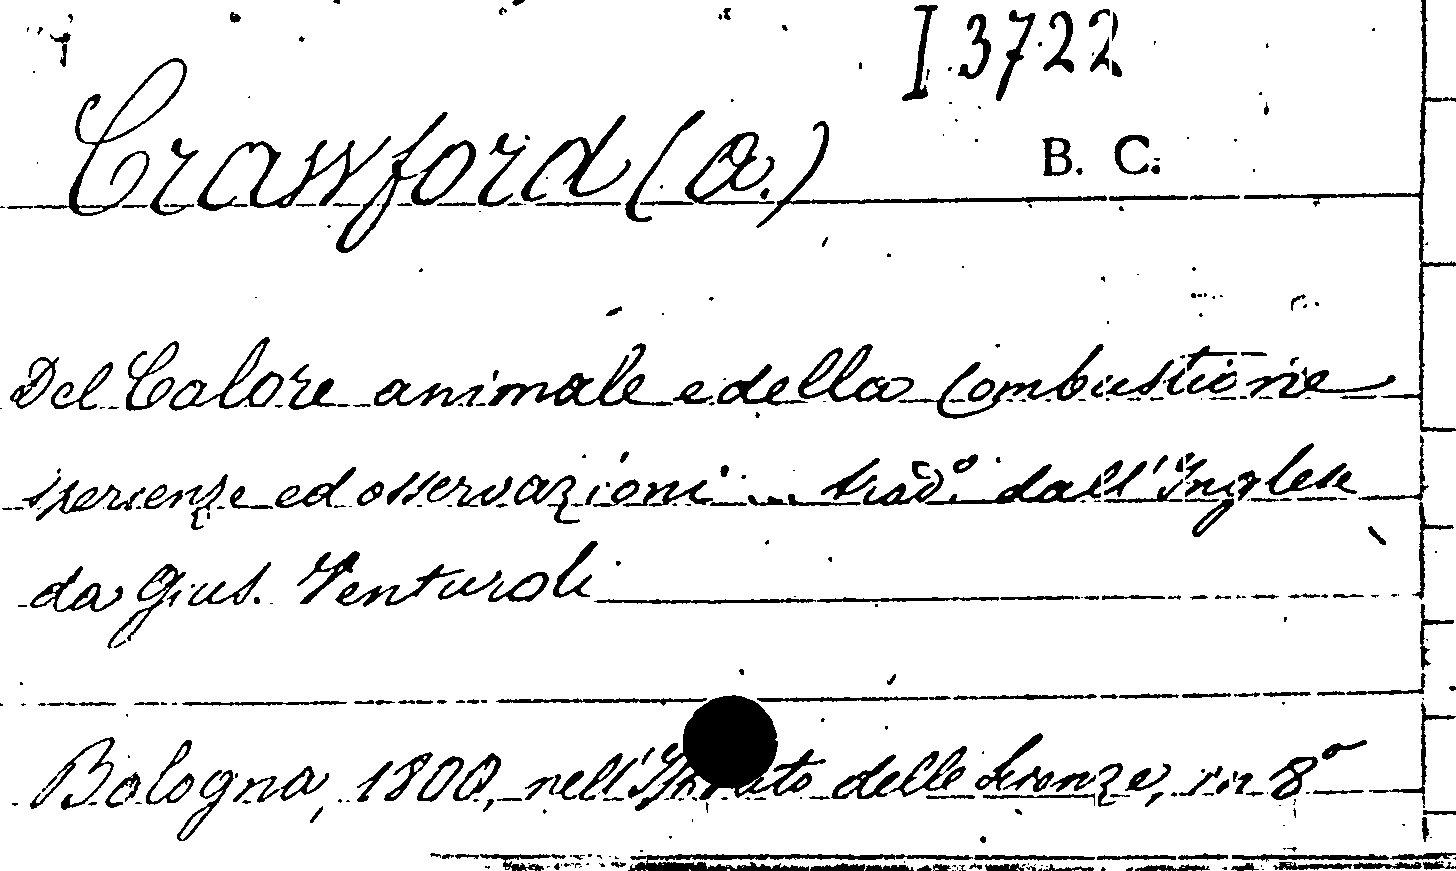 I 3722
Crawford (A.)
B. C.
Del Calore animale e della Combustione
sperienze ed osservazioni ... trad.o dall'Inglese
da Gius. Venturoli
Bologna, 1800, nell' delle Scienze, in 8°